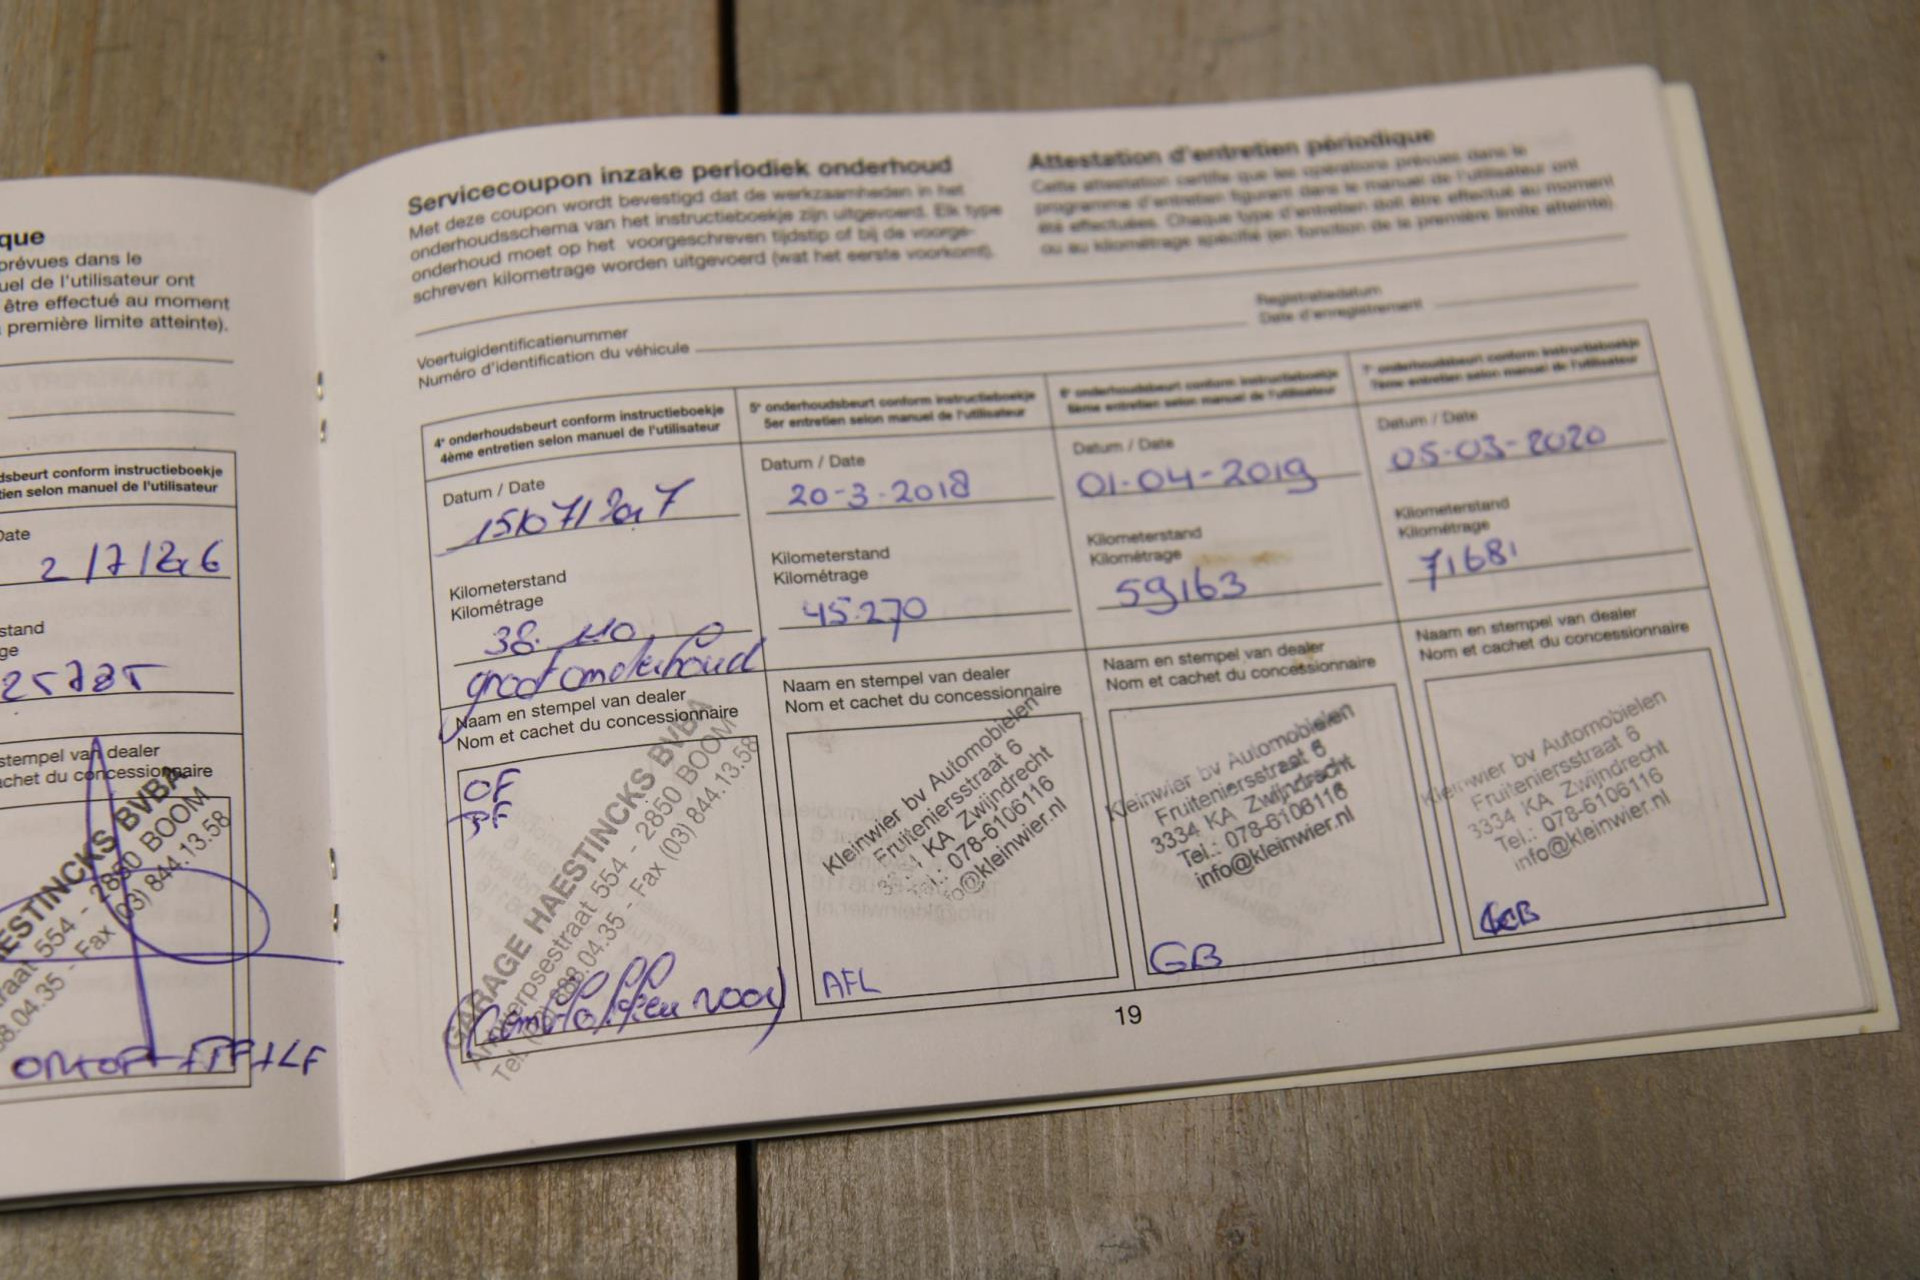 que
prévues dans le
uel de l'utilisateur ont
être effectué au moment
première limite atteinte).
dsbeurt conform instructieboekje
tien selon manuel de l'utilisateur
Date
2/7/2016
stand
ge
25785
stempel van dealer
achet du concessionnaire
ESTINCKS BVBA
raat 554 - 2850 BOOM
88.04.35 - Fax (03) 844.13.58
Servicecoupon inzake periodiek onderhoud
Met deze coupon wordt bevestigd dat de werkzaamheden in het
onderhoudsschema van het instructieboekje zijn uitgevoerd. Elk type
onderhoud moet op het voorgeschreven tijdstip of bij de voorge-
schreven kilometrage worden uitgevoerd (wat het eerste voorkomt).
Attestation d'entretien périodique
Cette attestation certifie que les opérations prévues dans le
programme d'entretien figurant dans le manuel de l'utilisateur ont
été effectuées. Chaque type d'entretien doit être effectué au moment
ou au kilométrage spécifié (en fonction de la première limite atteinte).
Voertuigidentificatienummer
Numéro d'identification du véhicule
Registratiedatum
Date d'enregistrement
4e onderhoudsbeurt conform instructieboekje
4ème entretien selon manuel de l'utilisateur
Datum / Date
15/07/2017
Kilometerstand
Kilométrage
38.110
groot onderhoud
Naam en stempel van dealer
Nom et cachet du concessionnaire
OF
GARAGE HAESTINCKS BVBA
Antwerpsestraat 554 - 2850 BOOM
Tel. (03) 888.04.35 - Fax (03) 844.13.58
5e onderhoudsbeurt conform instructieboekje
5er entretien selon manuel de l'utilisateur
Datum / Date
20-3-2018
Kilometerstand
Kilométrage
45.270
Naam en stempel van dealer
Nom et cachet du concessionnaire
Kleinwier bv Automobielen
Fruiteniersstraat 6
KA Zwijndrecht
078-6106116
@kleinwier.nl
AFL
6e onderhoudsbeurt conform instructieboekje
6ème entretien selon manuel de l'utilisateur
Datum / Date
01-04-2019
Kilometerstand
Kilométrage
59163
Naam en stempel van dealer
Nom et cachet du concessionnaire
Kleinwier bv Automobielen
Fruiteniersstraat 6
3334 KA Zwijndrecht
Tel.: 078-6106116
info@kleinwier.nl
GB
7e onderhoudsbeurt conform instructieboekje
7ème entretien selon manuel de l'utilisateur
Datum / Date
05-03-2020
Kilometerstand
Kilométrage
71681
Naam en stempel van dealer
Nom et cachet du concessionnaire
Kleinwier bv Automobielen
Fruiteniersstraat 6
3334 KA Zwijndrecht
Tel.: 078-6106116
info@kleinwier.nl
19